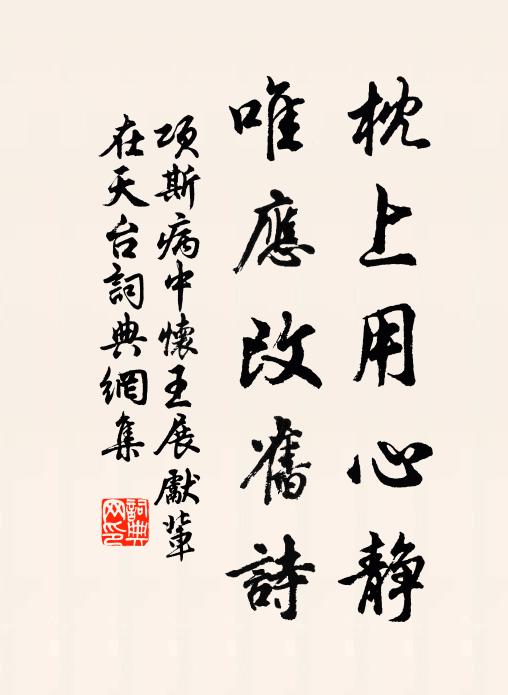 枕上用心静
唯應改舊詩
项斯病中懷王展獻輩
在天台詞典網集
詞典網印